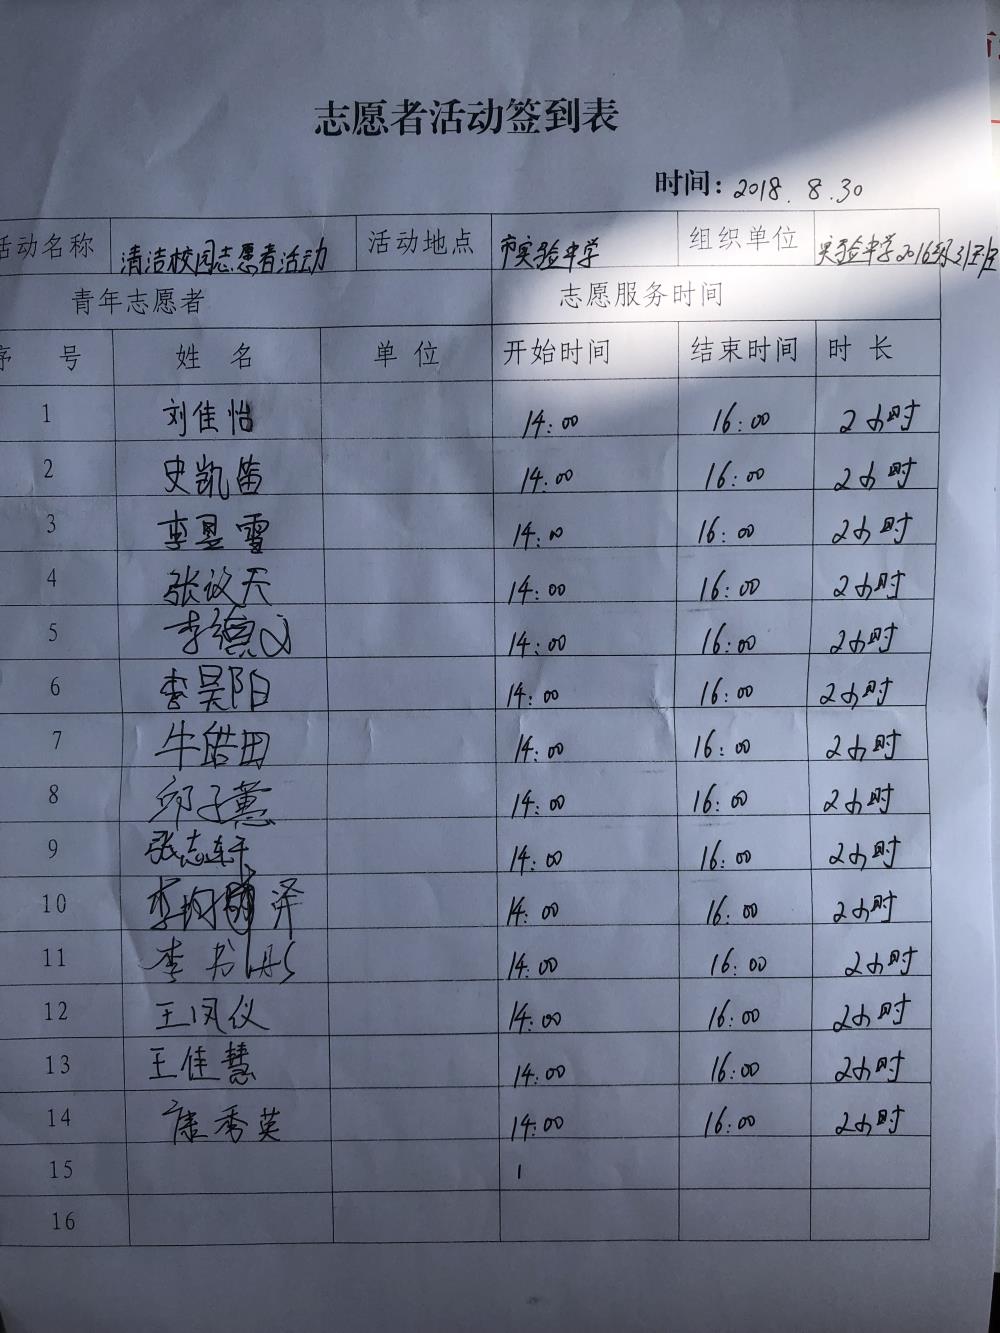 志愿者活动签到表
时间：2018.8.30
活动名称 清洁校园志愿者活动 活动地点 市实验中学 组织单位 实验中学2016级31班
青年志愿者 志愿服务时间
序 号 姓 名 单 位 开始时间 结束时间 时 长
1 刘佳怡 14:00 16:00 2小时
2 史凯笛 14:00 16:00 2小时
3 李昱雪 14:00 16:00 2小时
4 张议天 14:00 16:00 2小时
5 李德 14:00 16:00 2小时
6 李昊阳 14:00 16:00 2小时
7 牛皓田 14:00 16:00 2小时
8 邱子薰 14:00 16:00 2小时
9 张志 14:00 16:00 2小时
10 李均 泽 14:00 16:00 2小时
11 李书彤 14:00 16:00 2小时
12 王凤仪 14:00 16:00 2小时
13 王佳慧 14:00 16:00 2小时
14 康秀英 14:00 16:00 2小时
15 1
16